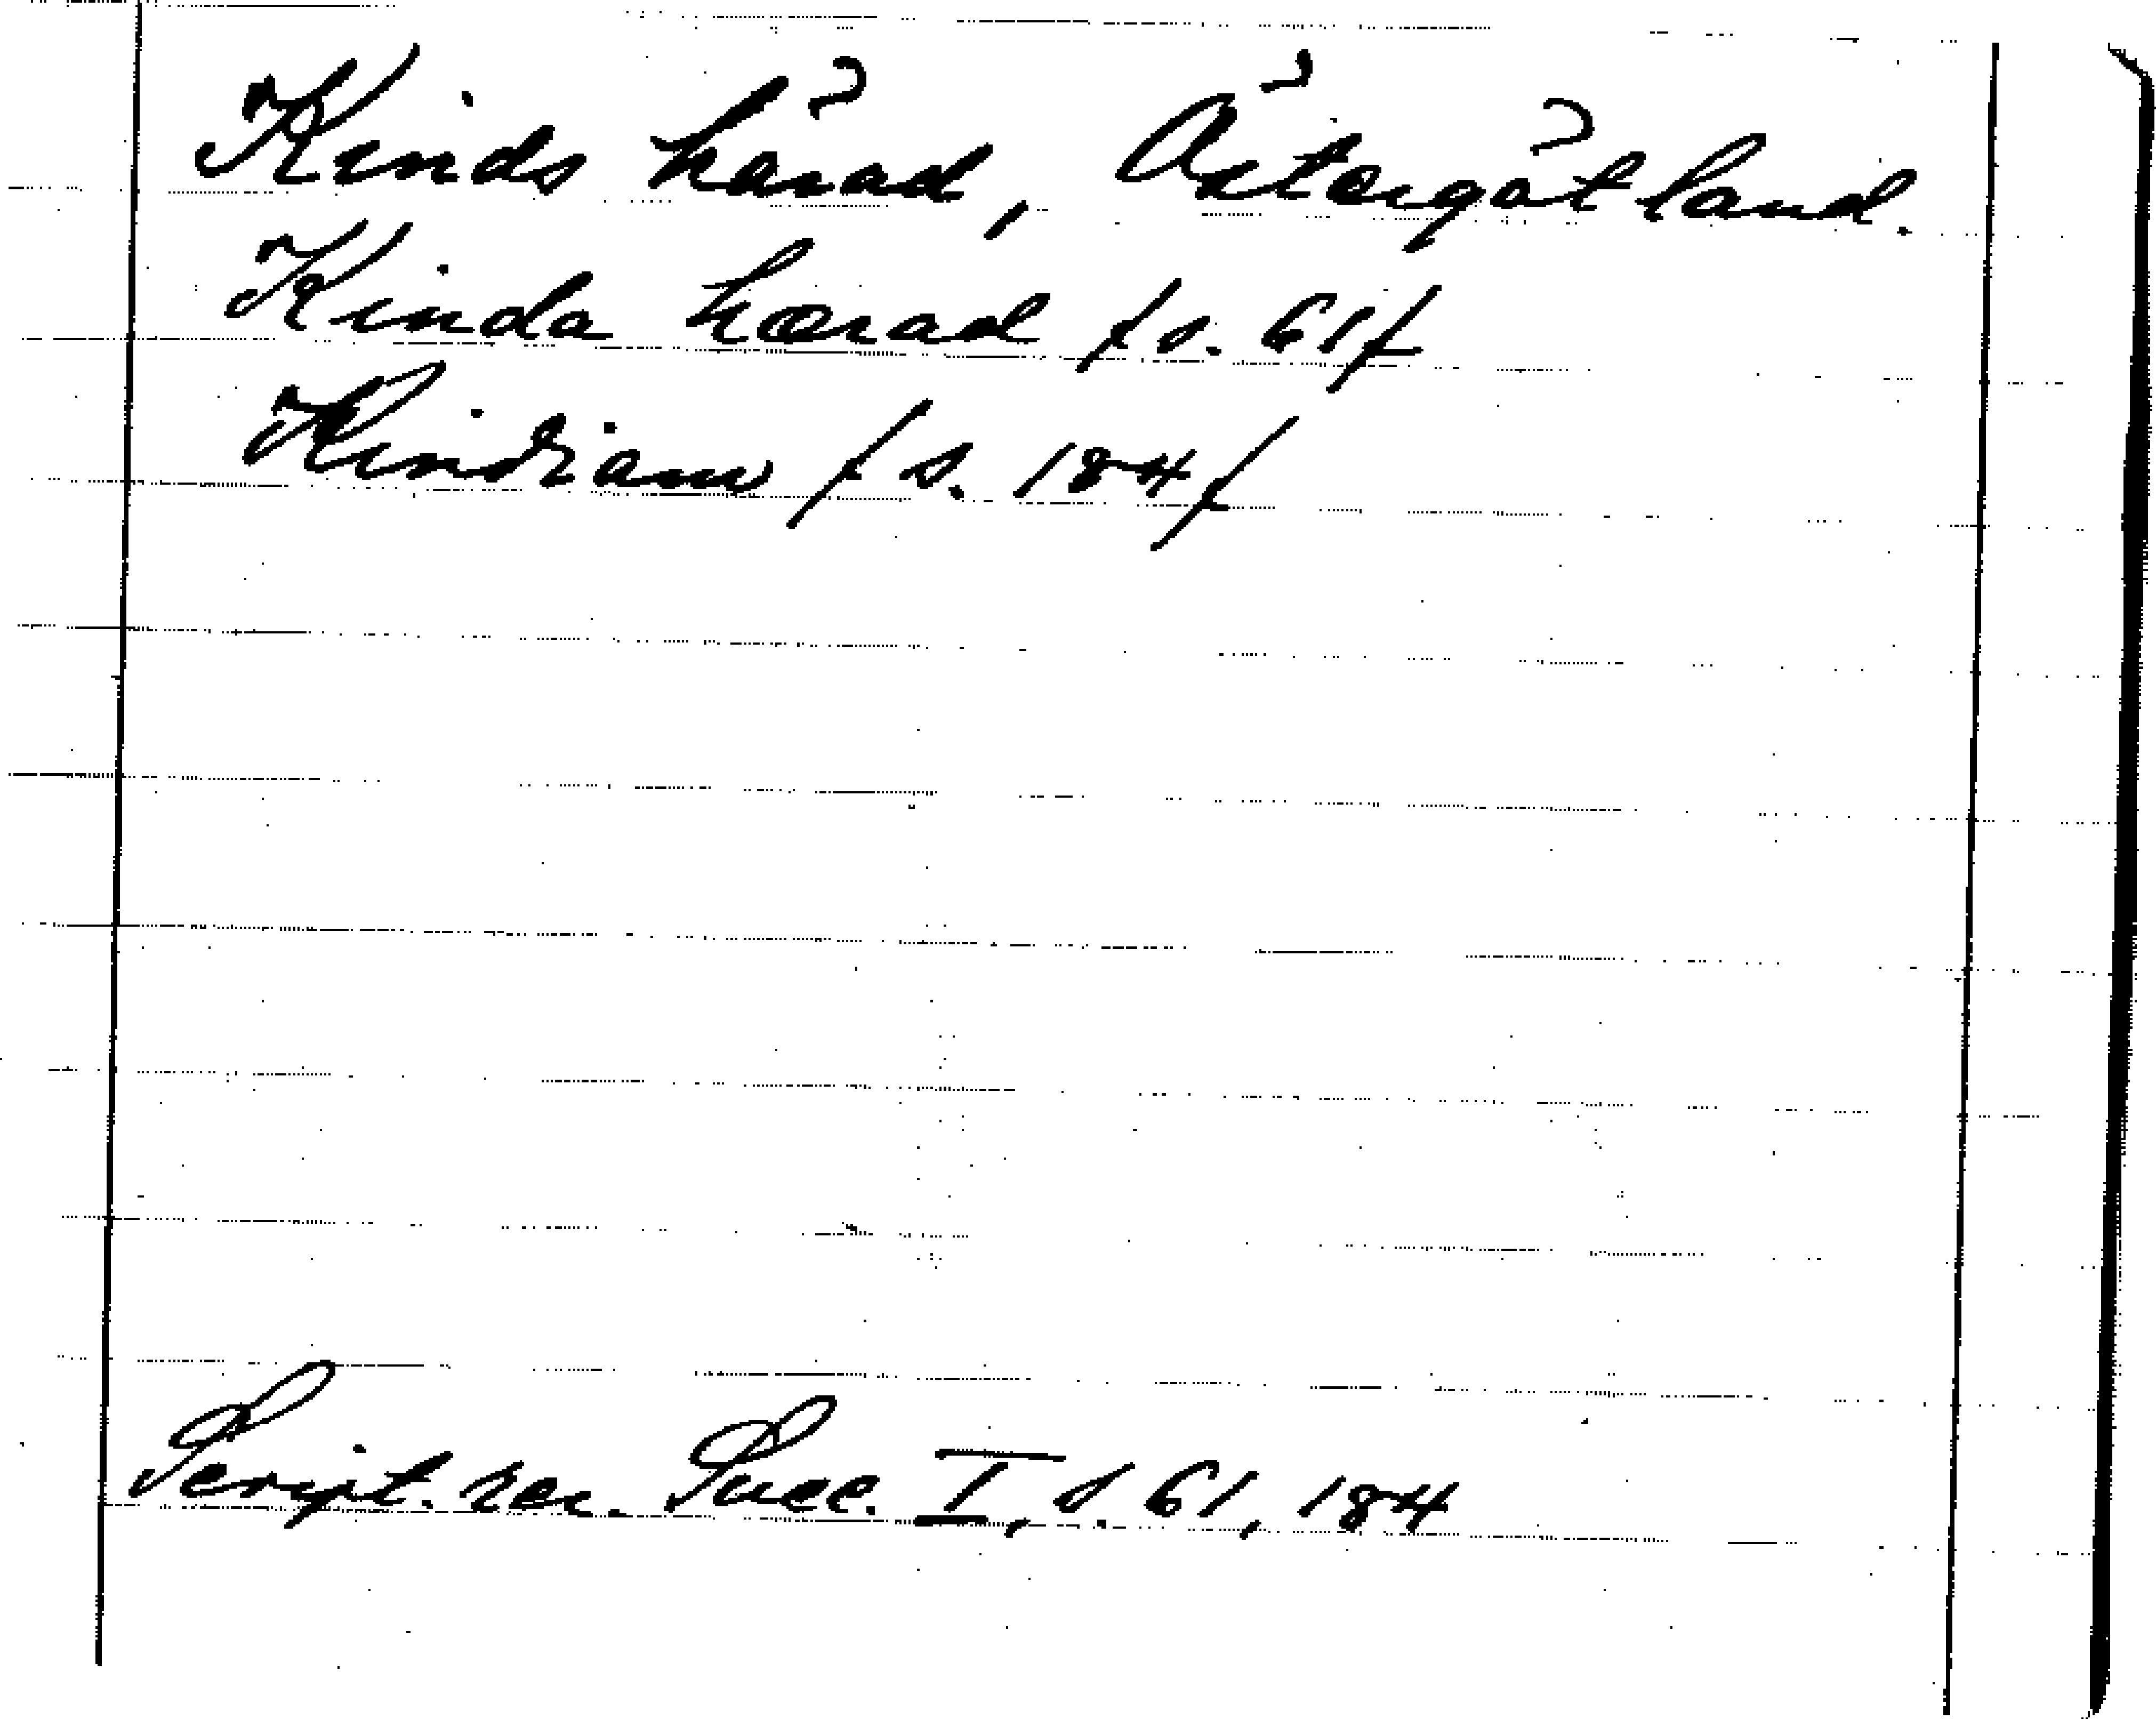 Kinds härad, Östergötland.
Kinda hærad /s. 61/
Kindiam /s. 184/
Script. rer. Suec. I, s. 61, 184